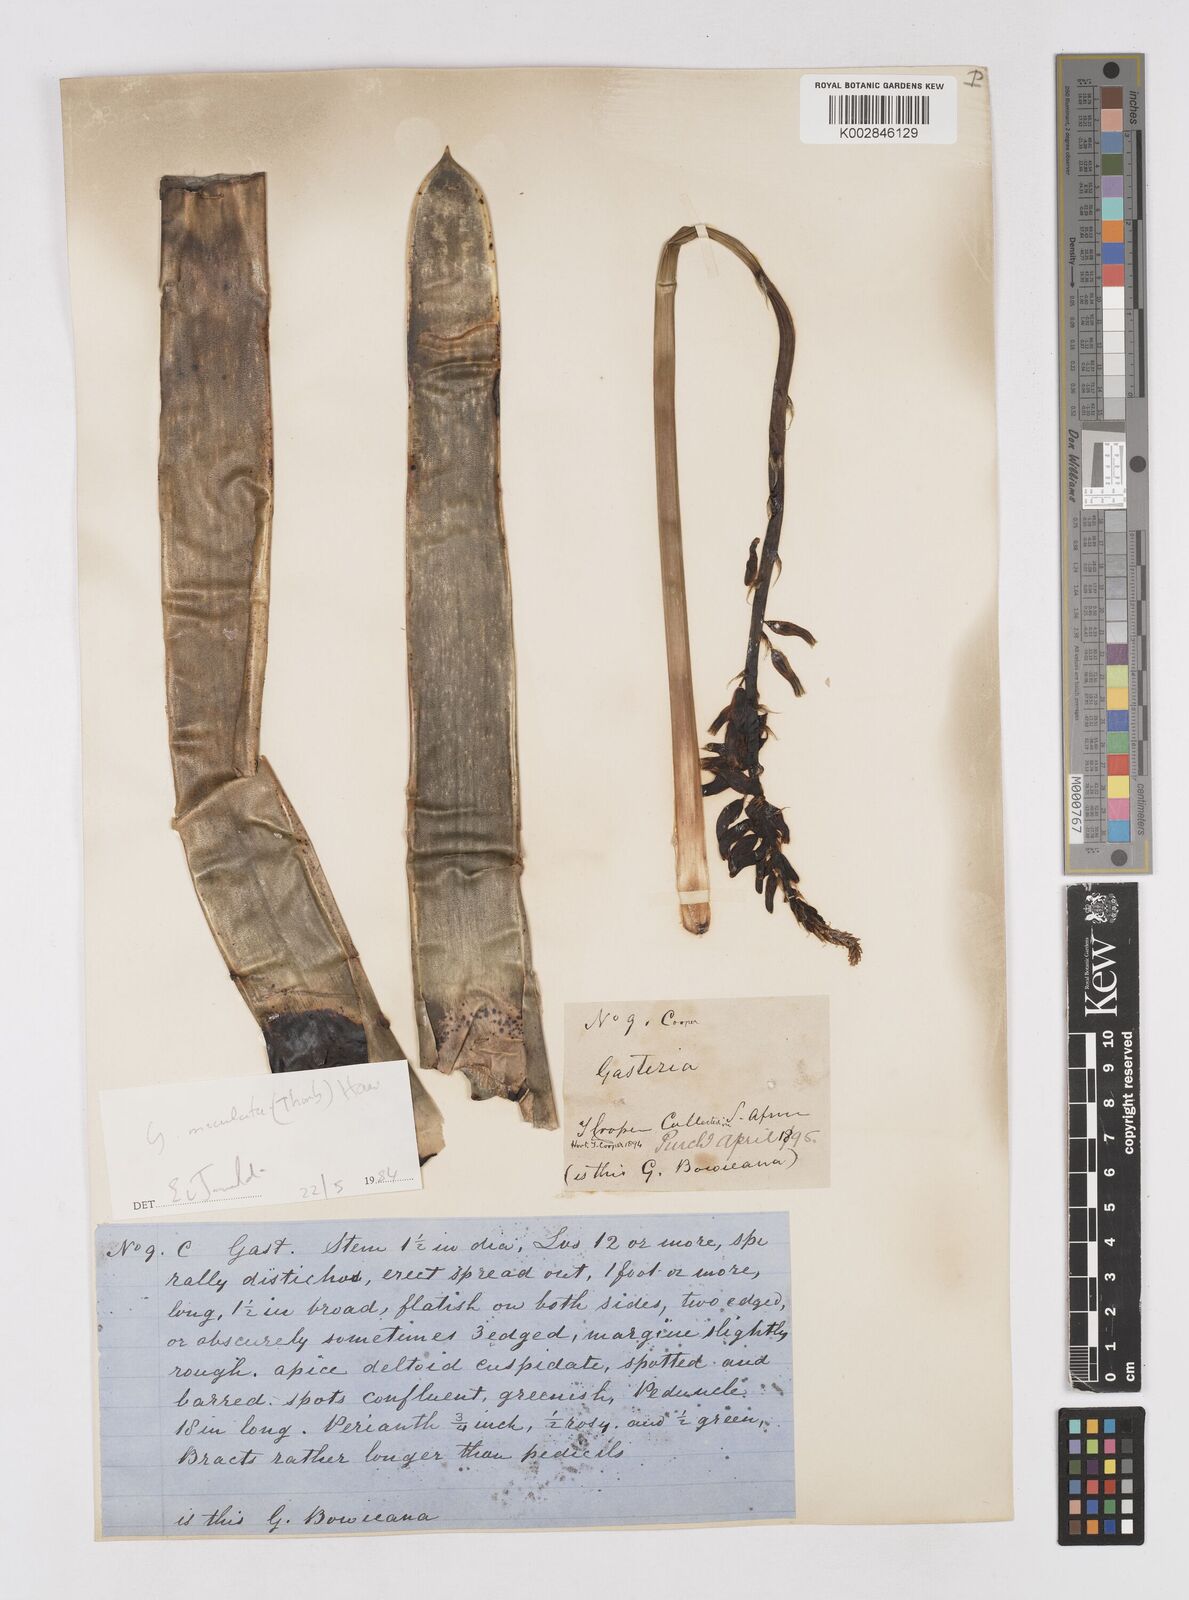 ROYAL BOTANIC GARDENS KEW
K002846129
inches
Density
Don Williams
centimeters
M000767
Royal Botanic Gardens
Kew
copyright reserved
0 1 2 3 4 5 6 7 8 9 10
cm
No 9. Cooper
Gasteria
T Cooper Collected in S. Africa
Hort. T. Cooper 1894 Purchd April 1896.
(is this G. Bowieana)
G. maculata (Thunb) Haw
DET. 22/5 1984
No 9. C Gast. Stem 1½ in dia, Lvs 12 or more, spi
rally distichos, erect spread out, 1 foot or more,
long, 1½ in broad, flatish on both sides, two edged,
or obscurely sometimes 3 edged, margine slightly
rough. apice deltoid cuspidate, spotted and
barred. spots confluent, greenish, Peduncle
18 in long. Perianth ¾ inch, ½ rosy and ½ green,
Bracts rather longer than pedicils
is this G. Bowieana